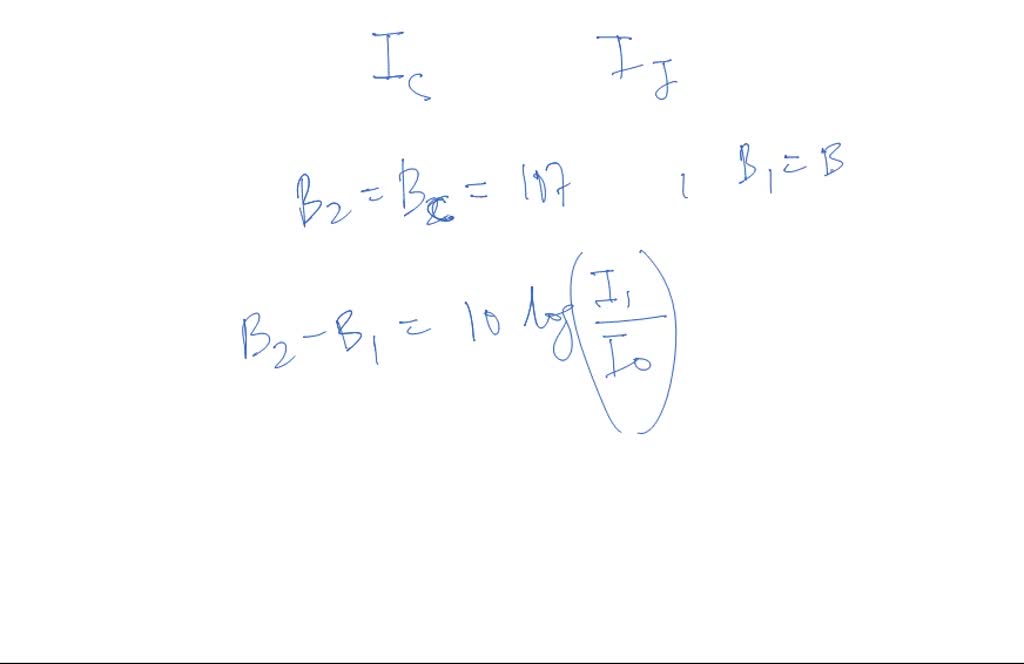 I_c I_J
B_2 = B_c = 107 , B_1 = B
B_2 - B_1 = 10 log(I_1/I_0)